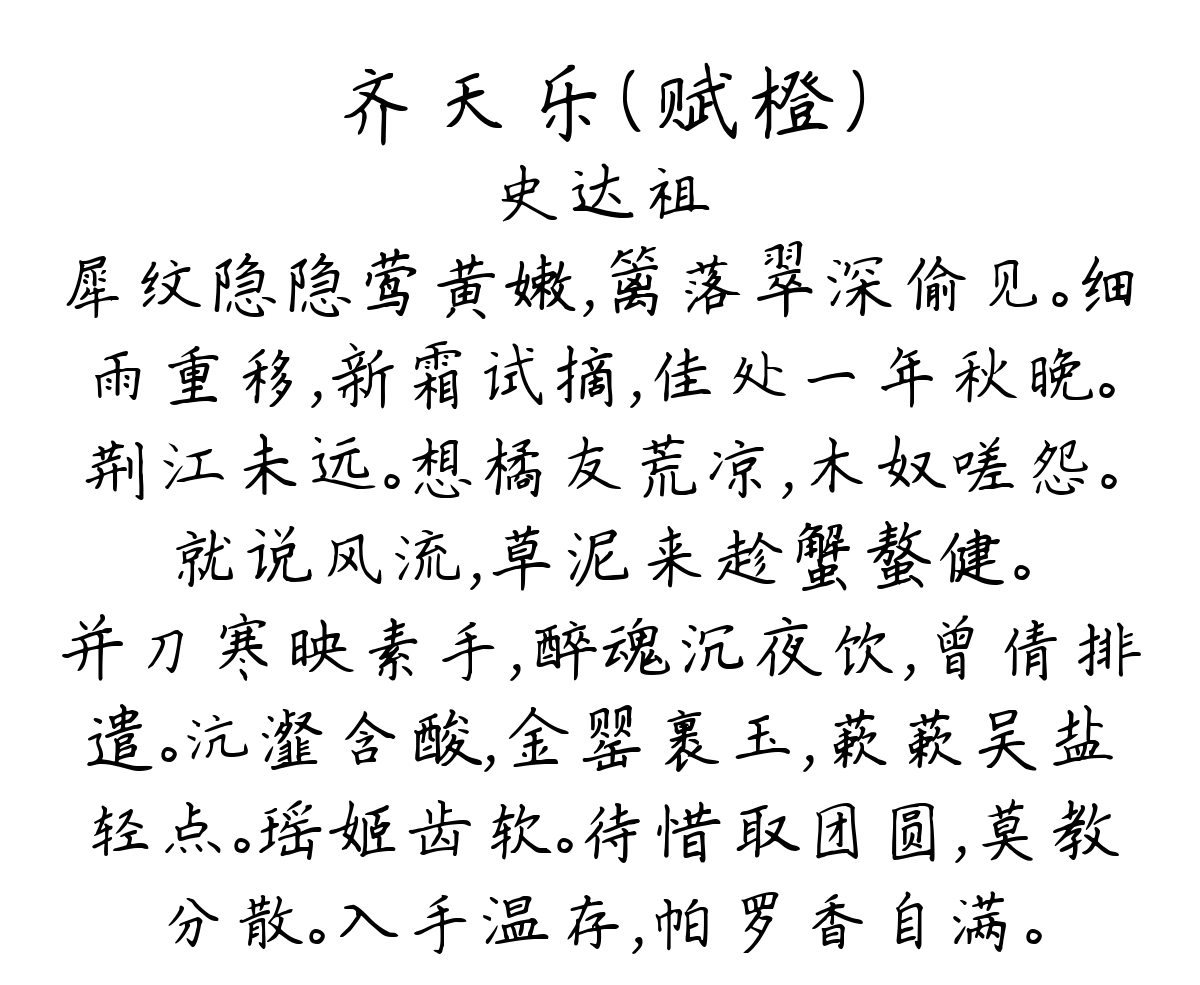 齐天乐(赋橙)
史达祖
犀纹隐隐莺黄嫩,篱落翠深偷见。细
雨重移,新霜试摘,佳处一年秋晚。
荆江未远。想橘友荒凉,木奴嗟怨。
就说风流,草泥来趁蟹螯健。
并刀寒映素手,醉魂沉夜饮,曾倩排
遣。沆瀣含酸,金罂裹玉,蔌蔌吴盐
轻点。瑶姬齿软。待惜取团圆,莫教
分散。入手温存,帕罗香自满。